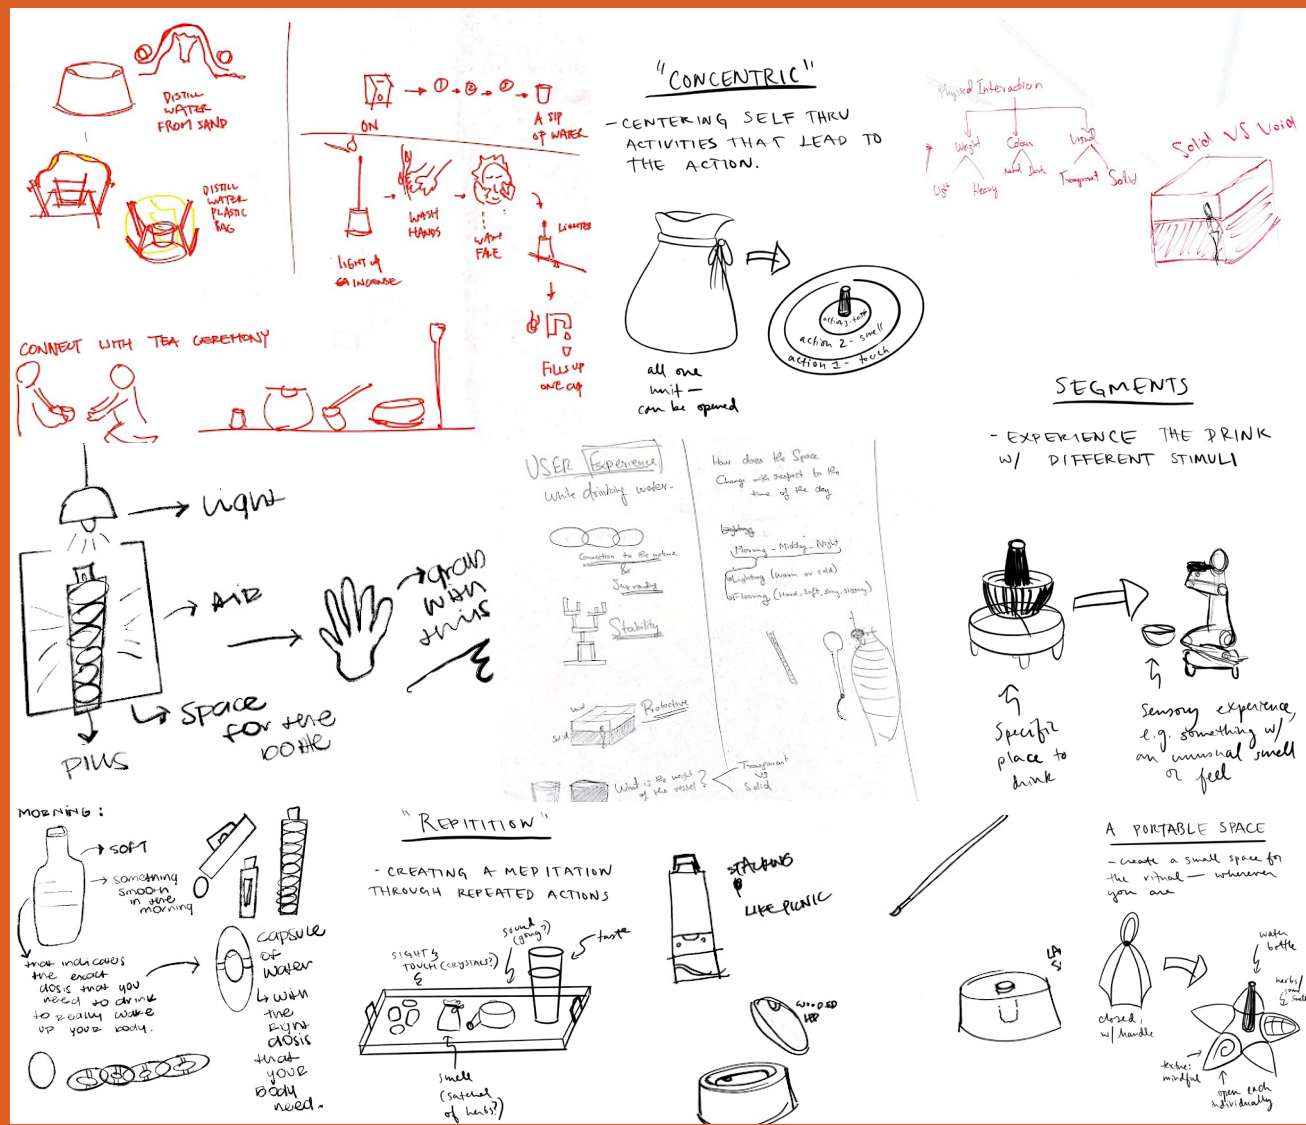 DISTILL
WATER
FROM SAND
DISTILL
WATER
PLASTIC
BAG
ON
1
2
3
A SIP
OF WATER
LIGHT UP
INCENSE
WASH
HANDS
WASH
FACE
LIGHTER
FILLS UP
ONE CUP
CONNECT WITH TEA CEREMONY
"CONCENTRIC"
- CENTERING SELF THRU
ACTIVITIES THAT LEAD TO
THE ACTION.
all one
unit —
can be opened
action 3 - taste
action 2 - smell
action 1 - touch
Physical Interaction
Weight
Colour
Visual
Light
Heavy
Dark
Transparent
Solid
Solid VS Void
SEGMENTS
- EXPERIENCE THE DRINK
W/ DIFFERENT STIMULI
Specific
place to
drink
Sensory experience,
e.g. something w/
an unusual smell
or feel
Light
AIR
Space
for the
bottle
PILLS
grab
with
this
USER Experience
while drinking water.
Connection to the nature
&
Stability
Void
Solid
Protective
What is the weight
of the vessel?
Transparent
VS
Solid
How does the Space
Change with respect to the
time of the day
Morning - Midday - Night
Lighting (Warm or cold)
Flooring (Hard, Soft,
MORNING:
SOFT
something
smooth
in the
morning
that indicates
the exact
dosis that you
need to drink
to really wake
up your body.
capsule
of
water
with
the
right
dosis
that
your
body
need.
"REPITITION"
- CREATING A MEDITATION
THROUGH REPEATED ACTIONS
SIGHT &
TOUCH (CRYSTALS?)
sound
(gong?)
taste
smell
(satchel
of herbs?)
STACKING
LIKE PICNIC
WOODED
A PORTABLE SPACE
- create a small space for
the ritual — wherever
you are
closed,
w/ handle
water
bottle
herbs/
smell
texture:
mindful
open each
individually